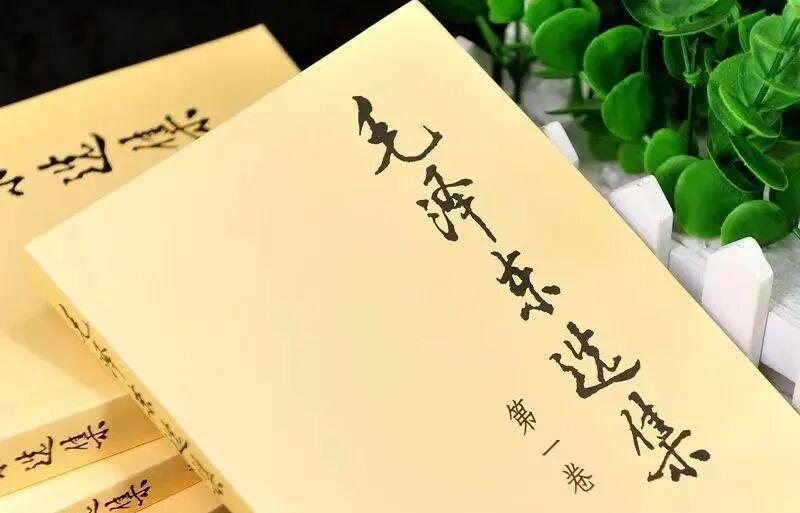 毛泽东选集
第一卷
选集
毛泽东选集
选集
选集